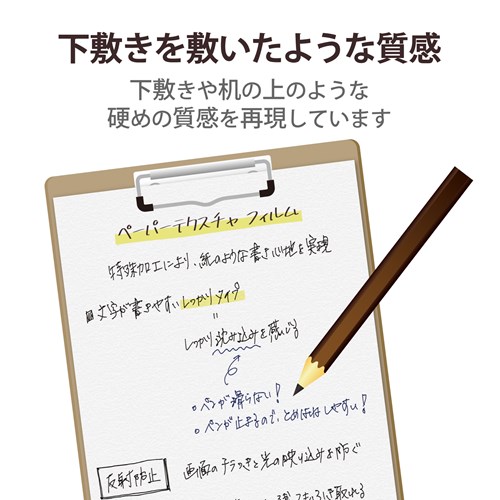 下敷きを敷いたような質感
下敷きや机の上のような
硬めの質感を再現しています
ペーパーテクスチャフィルム
特殊加工により、紙のような書き心地を実現
文字が書きやすいしっかりタイプ
=
しっかり沈み込みを感じる
○ペンが滑らない!
○ペンが止まるので、とめはねはらいしやすい!
反射防止
画面のチラつきと光の映り込みを防ぐ